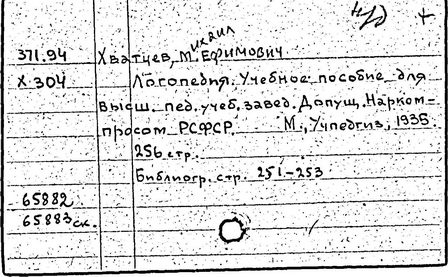 н/д +
371.94 Хватцев, Михаил Ефимович
Х 304 Логопедия. Учебное пособие для
высш. пед. учеб. завед. Допущ. Нарком-
просом РСФСР. М., Учпедгиз, 1935
256 стр.
Библиогр. стр. 251-253
65882
65883 ск.